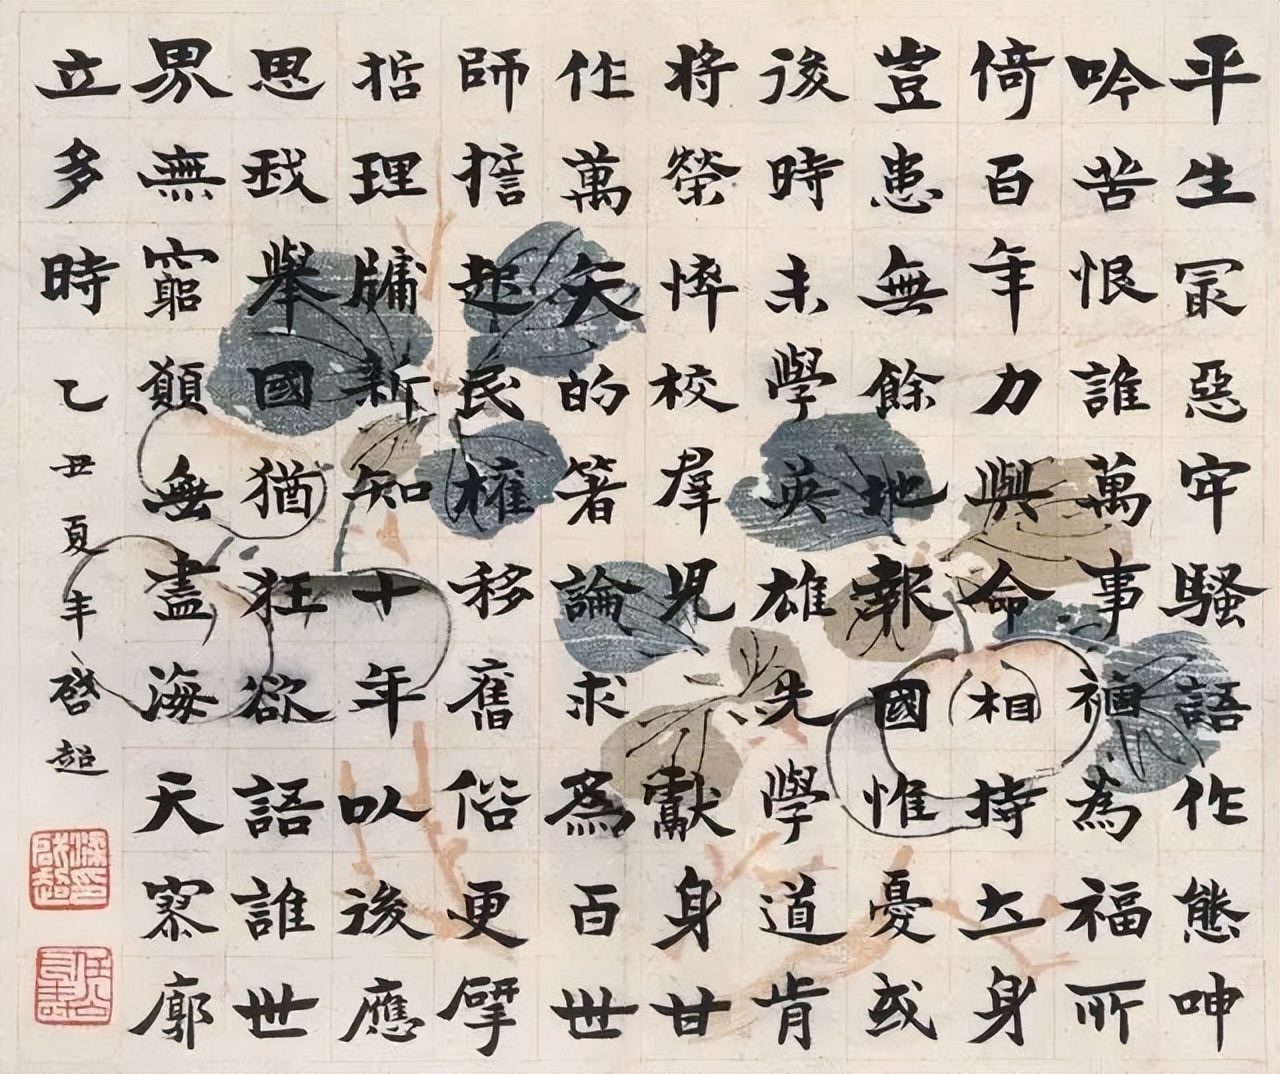 平生冣惡牢騷語作態呻
吟苦恨誰萬事禍為福所
倚百年力與命相持立身
豈患無餘地報國惟憂或
後時未學英雄先學道肯
將榮悴校羣兒獻身甘
作萬矢的箸論求為百世
師誓起民權移舊俗更揅
哲理牖新知十年以後應
思我舉國猶狂欲語誰世
界無窮願無盡海天寥廓
立多時
乙丑夏半啓超